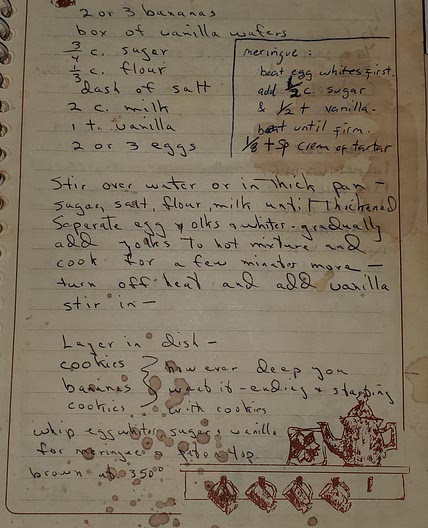 2 or 3 bananas
box of vanilla wafers
3/4 c. sugar
1/3 c. flour
dash of salt
2 c. milk
1 t. vanilla
2 or 3 eggs
meringue:
beat egg whites first.
add 1/2 c. sugar
& 1/2 t vanilla.
beat until firm.
1/8 tsp crem of tartar
Stir over water or in thick pan -
sugar, salt, flour, milk until thickened
Separate egg yolks & whites - gradually
add yolks to hot mixture and
cook for a few minutes more -
turn off heat and add vanilla
stir in -
Layer in dish -
cookies } however deep you
bananas } want it - ending & starting
cookies } with cookies
whip egg whites, sugar & vanilla
for meringue & put on top.
brown at 350°